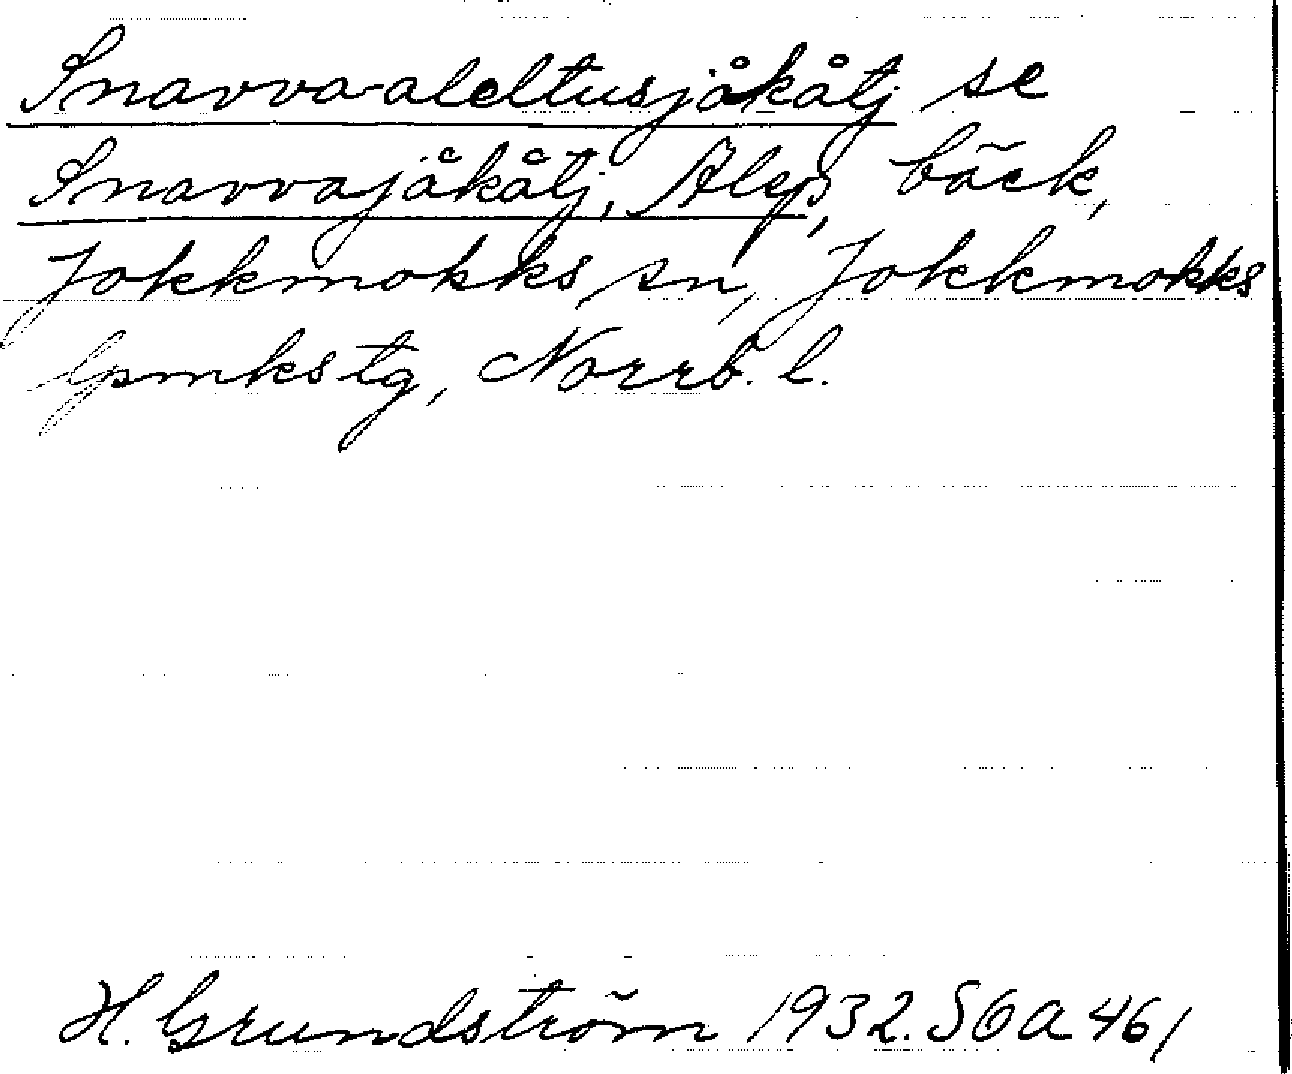 Snavva-aleltusjåkåtj se
Snavvajåkåtj, Alep, bäck,
Jokkmokks sn, Jokkmokks
lpmks tg, Norrb. l.
H. Grundström 1932. SOA 461